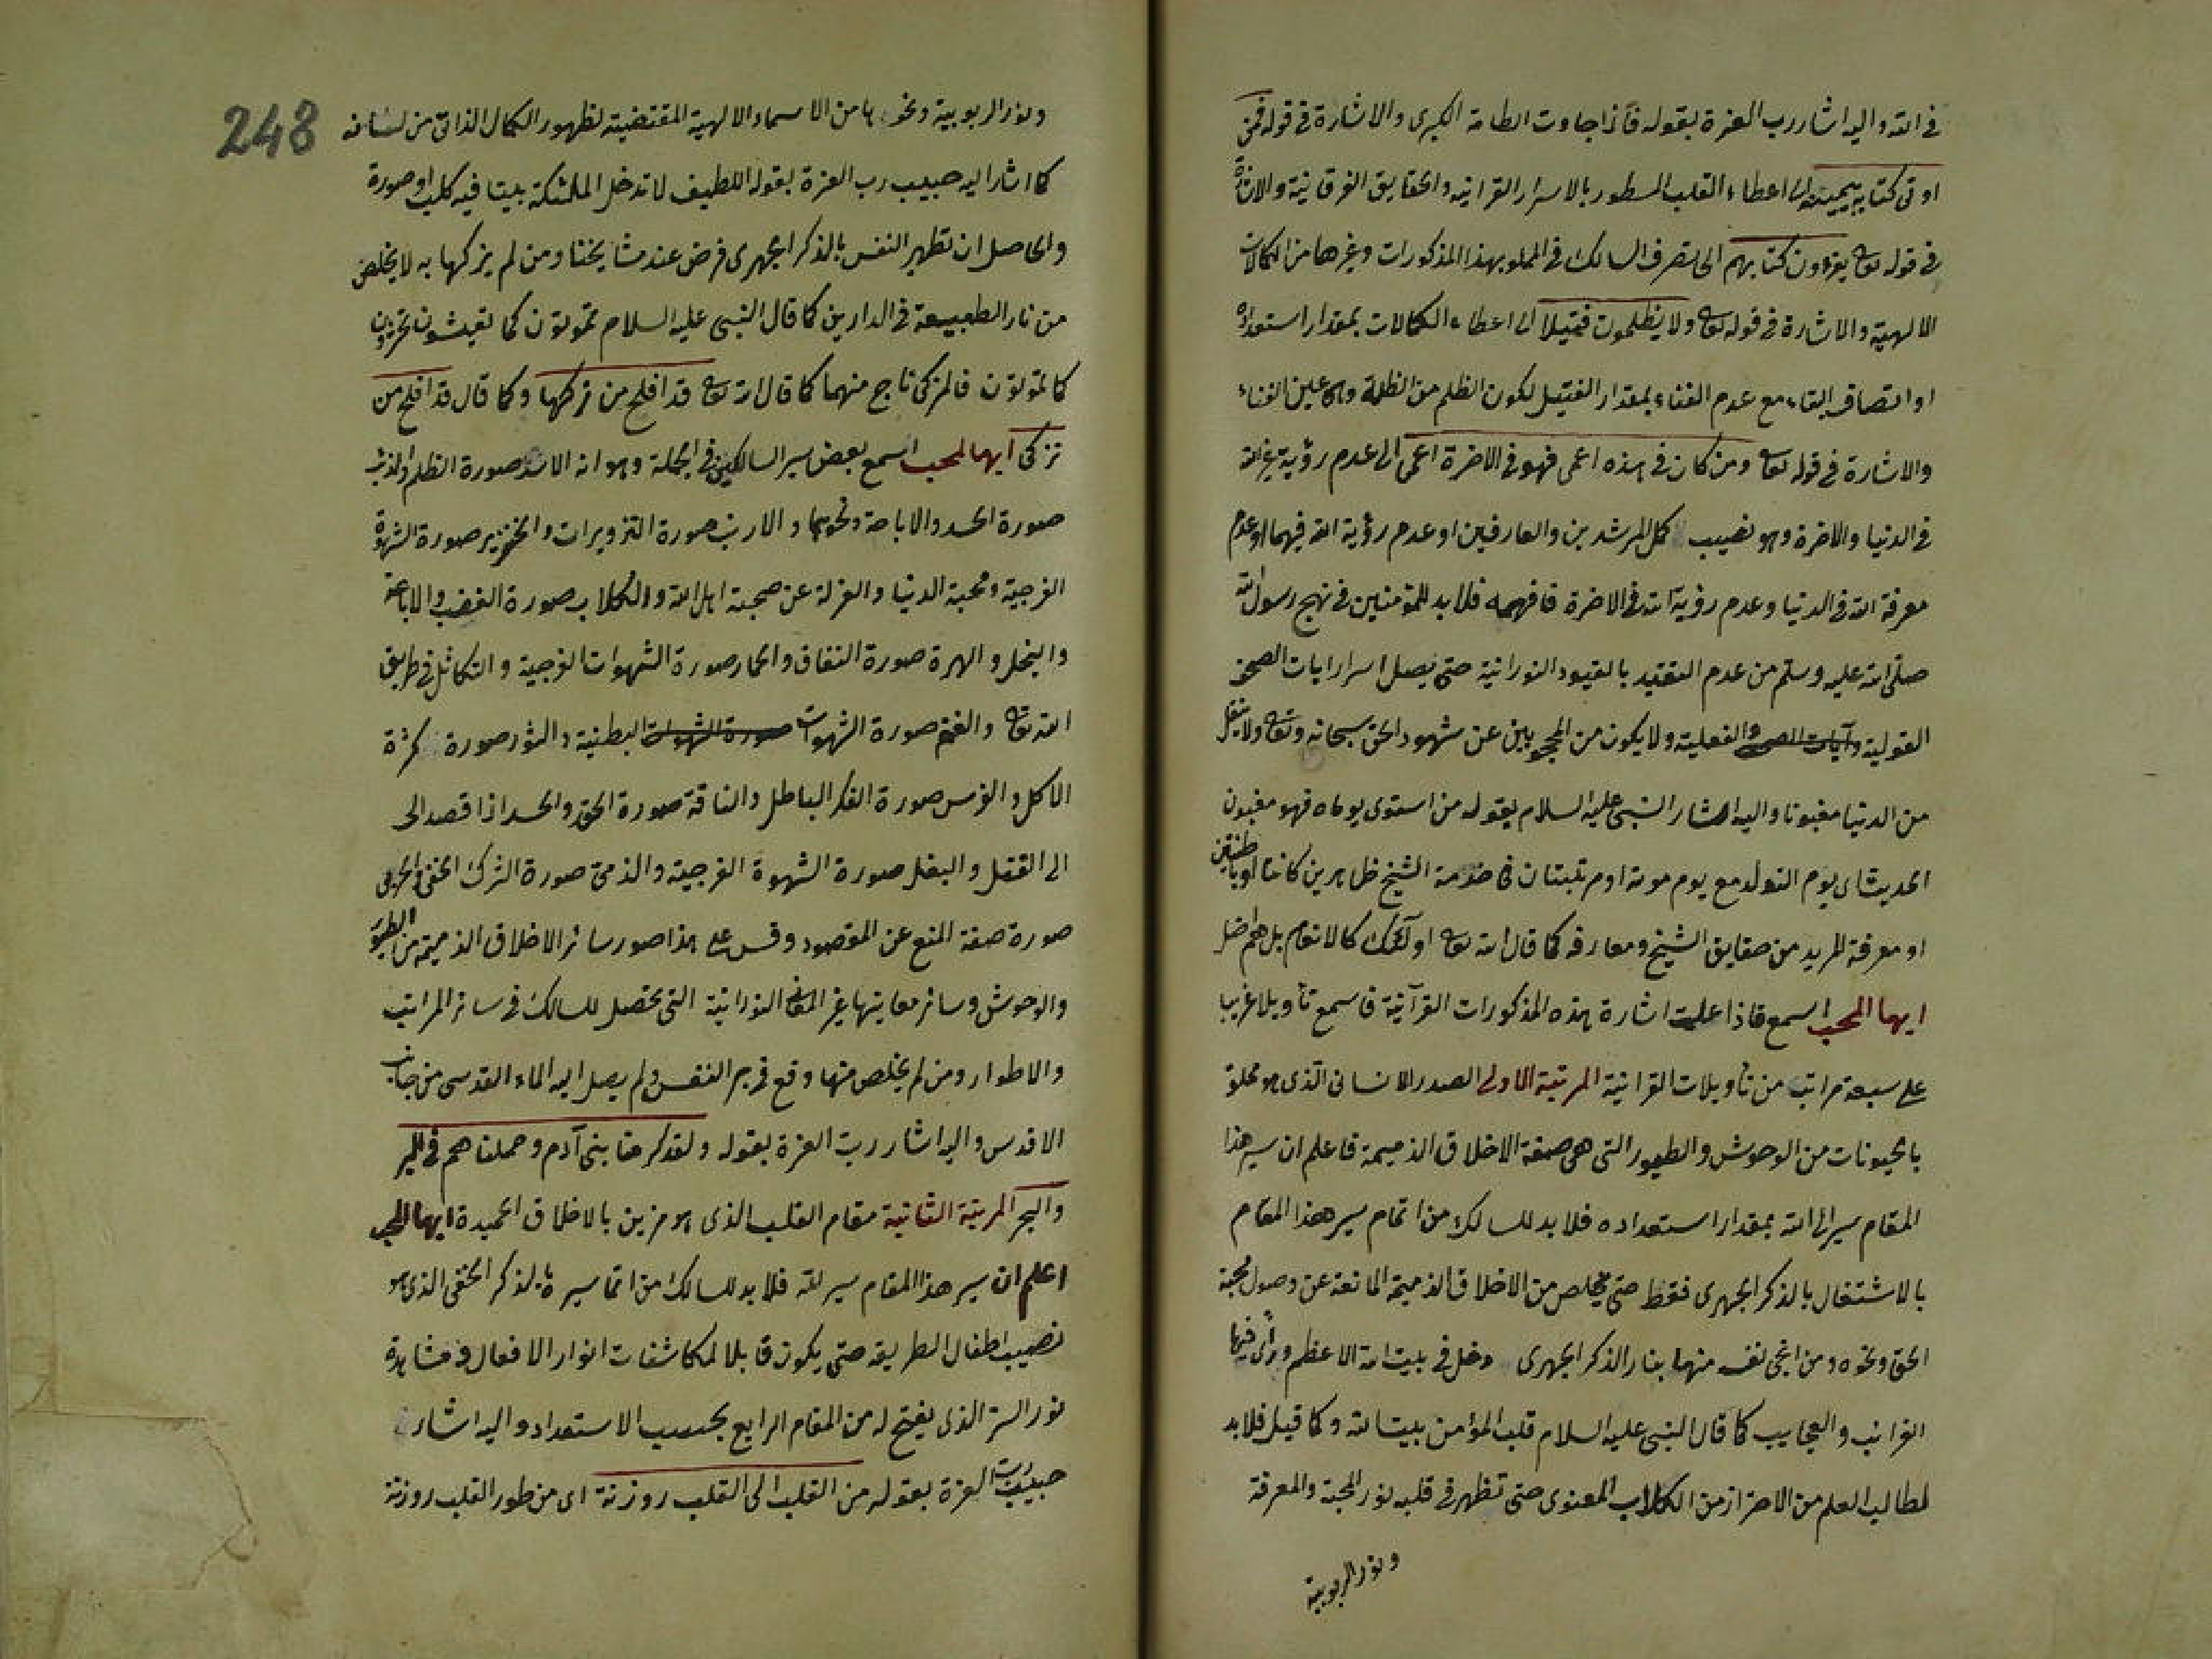 في الله واليه اشار رب العزة بقوله فاذا جاءت الطامة الكبرى والاشارة في قوله فمن
اوتي كتابه بيمينه الى اعطاء القلب المسطور بالاسرار القرانية والحقايق الفرقانية والاشارة
في قوله تعا يقرءون كتابهم الى تصرف السالك في المملو بهذا المذكورات وغيرها من الكمالات
الالهية والاشارة في قوله تعا ولا يظلمون فتيلا الى اعطاء الكمالات بمقدار استعداده
او اتصاف البقاء مع عدم الفناء بمقدار الفتيل لكون الظلم من الظلمة وهى عين الفناء
والاشارة في قوله تعا ومن كان في هذه اعمى فهو في الاخرة اعمى الى عدم رؤية غير الله
في الدنيا والاخرة وهو نصيب كمل المرشدين والعارفين او عدم رؤية الله فيهما او عدم
معرفة الله في الدنيا وعدم رؤية الله في الاخرة فافهمه فلا بد للمؤمنين في نهج رسول الله
صلى الله عليه وسلم من عدم التقيد بالقيود النورانية حتى يصل اسرار ايات الصحف
القولية والفعلية ولا يكون من المحجوبين عن شهود الحق سبحانه وتعا ولا ينتقل
من الدنيا مغبونا واليه اشار النبي عليه السلام بقوله من استوى يوماه فهو مغبون
الحديث اى يوم التولد مع يوم موته او مرتبتان في خدمة الشيخ ظاهرين كانتا او باطنتين
او معرفة المريد من حقايق الشيخ ومعارفه كما قال الله تعا اولئك كالانعام بل هم اضل
ايها المحب اسمع فاذا علمت اشارة هذه المذكورات القرآنية فاسمع تأويلا غريبا
على سبعة مراتب من تأويلات القرانية المرتبة الاولى الصدر الانسانى الذى هو مملو
بالحيونات من الوحوش والطيور التى هى صفة الاخلاق الذميمة فاعلم ان سير هذا
المقام سير الى الله بمقدار استعداده فلا بد للسالك من اتمام سير هذا المقام
بالاشتغال بالذكر الجهرى فقط حتى يخلص من الاخلاق الذميمة المانعة عن وصول محبة
الحق ونحوه ومن انجى نفسه منها بنار الذكر الجهرى دخل في بيت الله الاعظم ورأى فيها
الغرائب والعجايب كما قال النبي عليه السلام قلب المؤمن بيت الله وكما قيل فلا بد
لطالب العلم من الاحتراز من الكلاب المعنوى حتى تظهر في قلبه نور المحبة والمعرفة
ونور الربوبية
248
ونور الربوبية ونحوها من الاسماء الالهية المقتضية لظهور الكمال الذاتى من لسانه
كما اشار اليه حبيب رب العزة بقوله اللطيف لا تدخل الملئكة بيتا فيه كلب او صورة
والحاصل ان تطهير النفس بالذكر الجهرى فرض عند مشايخنا ومن لم يزكها به لا يخلص
من نار الطبيعة في الدارين كما قال النبي عليه السلام تموتون كما تعيشون تحشرون
كما تموتون فالمزكى ناج منهما كما قال الله تعا قد افلح من زكها وكما قال قد افلح من
تزكى ايها المحب اسمع بعض سير السالكين في الجملة وهو انه الاسد صورة الظلم والذئب
صورة الحسد والاباحة ونحوهما والارنب صورة التزويرات والخنزير صورة الشهوة
الفرجية ومحبة الدنيا والعزلة عن صحبة اهل الله والكلاب صورة الغضب والاباعة
والبخل و الهرة صورة النفاق والحمار صورة الشهوات الفرجية و التكاثل في طريق
الله تعا والغنم صورة الشهوات صورة الشهوات البطنية والثور صورة كثرة
الاكل و الفرس صورة الفكر الباطل والناقة صورة الحقد والحسد اذا قصد الى
الى القتل و البغل صورة الشهوة الفرجية والذمى صورة الشرك الخفى والحربى
صورة صفة المنع عن المقصود وقس على هذا صور سائر الاخلاق الذميمة من الطيور
والوحوش وسائر معاينها غير المعانى النورانية التى تحصل للسالك في سائر المراتب
والاطوار ومن لم يخلص منها وقع في بر النفس ولم يصل اليه الماء القدسى من جانب
الاقدس واليه اشار رب العزة بقوله ولقد كرمنا بنى آدم وحملناهم في البر
والبحر المرتبة الثانية مقام القلب الذى هو مزين بالاخلاق الحميدة ايها المحب
اعلم ان سير هذا المقام سير لله فلا بد للسالك من اتما سيره بالذكر الخفى الذى هو
نصيب اطفال الطريقة حتى يكون قابلا لمكاشفات انوار الافعال ومشاهدة
نور السر الذى يفتح له من المقام الرابع بحسب الاستعداد واليه اشار
حبيب رب العزة بقوله من القلب الى القلب روزنة اى من طور القلب روزنة